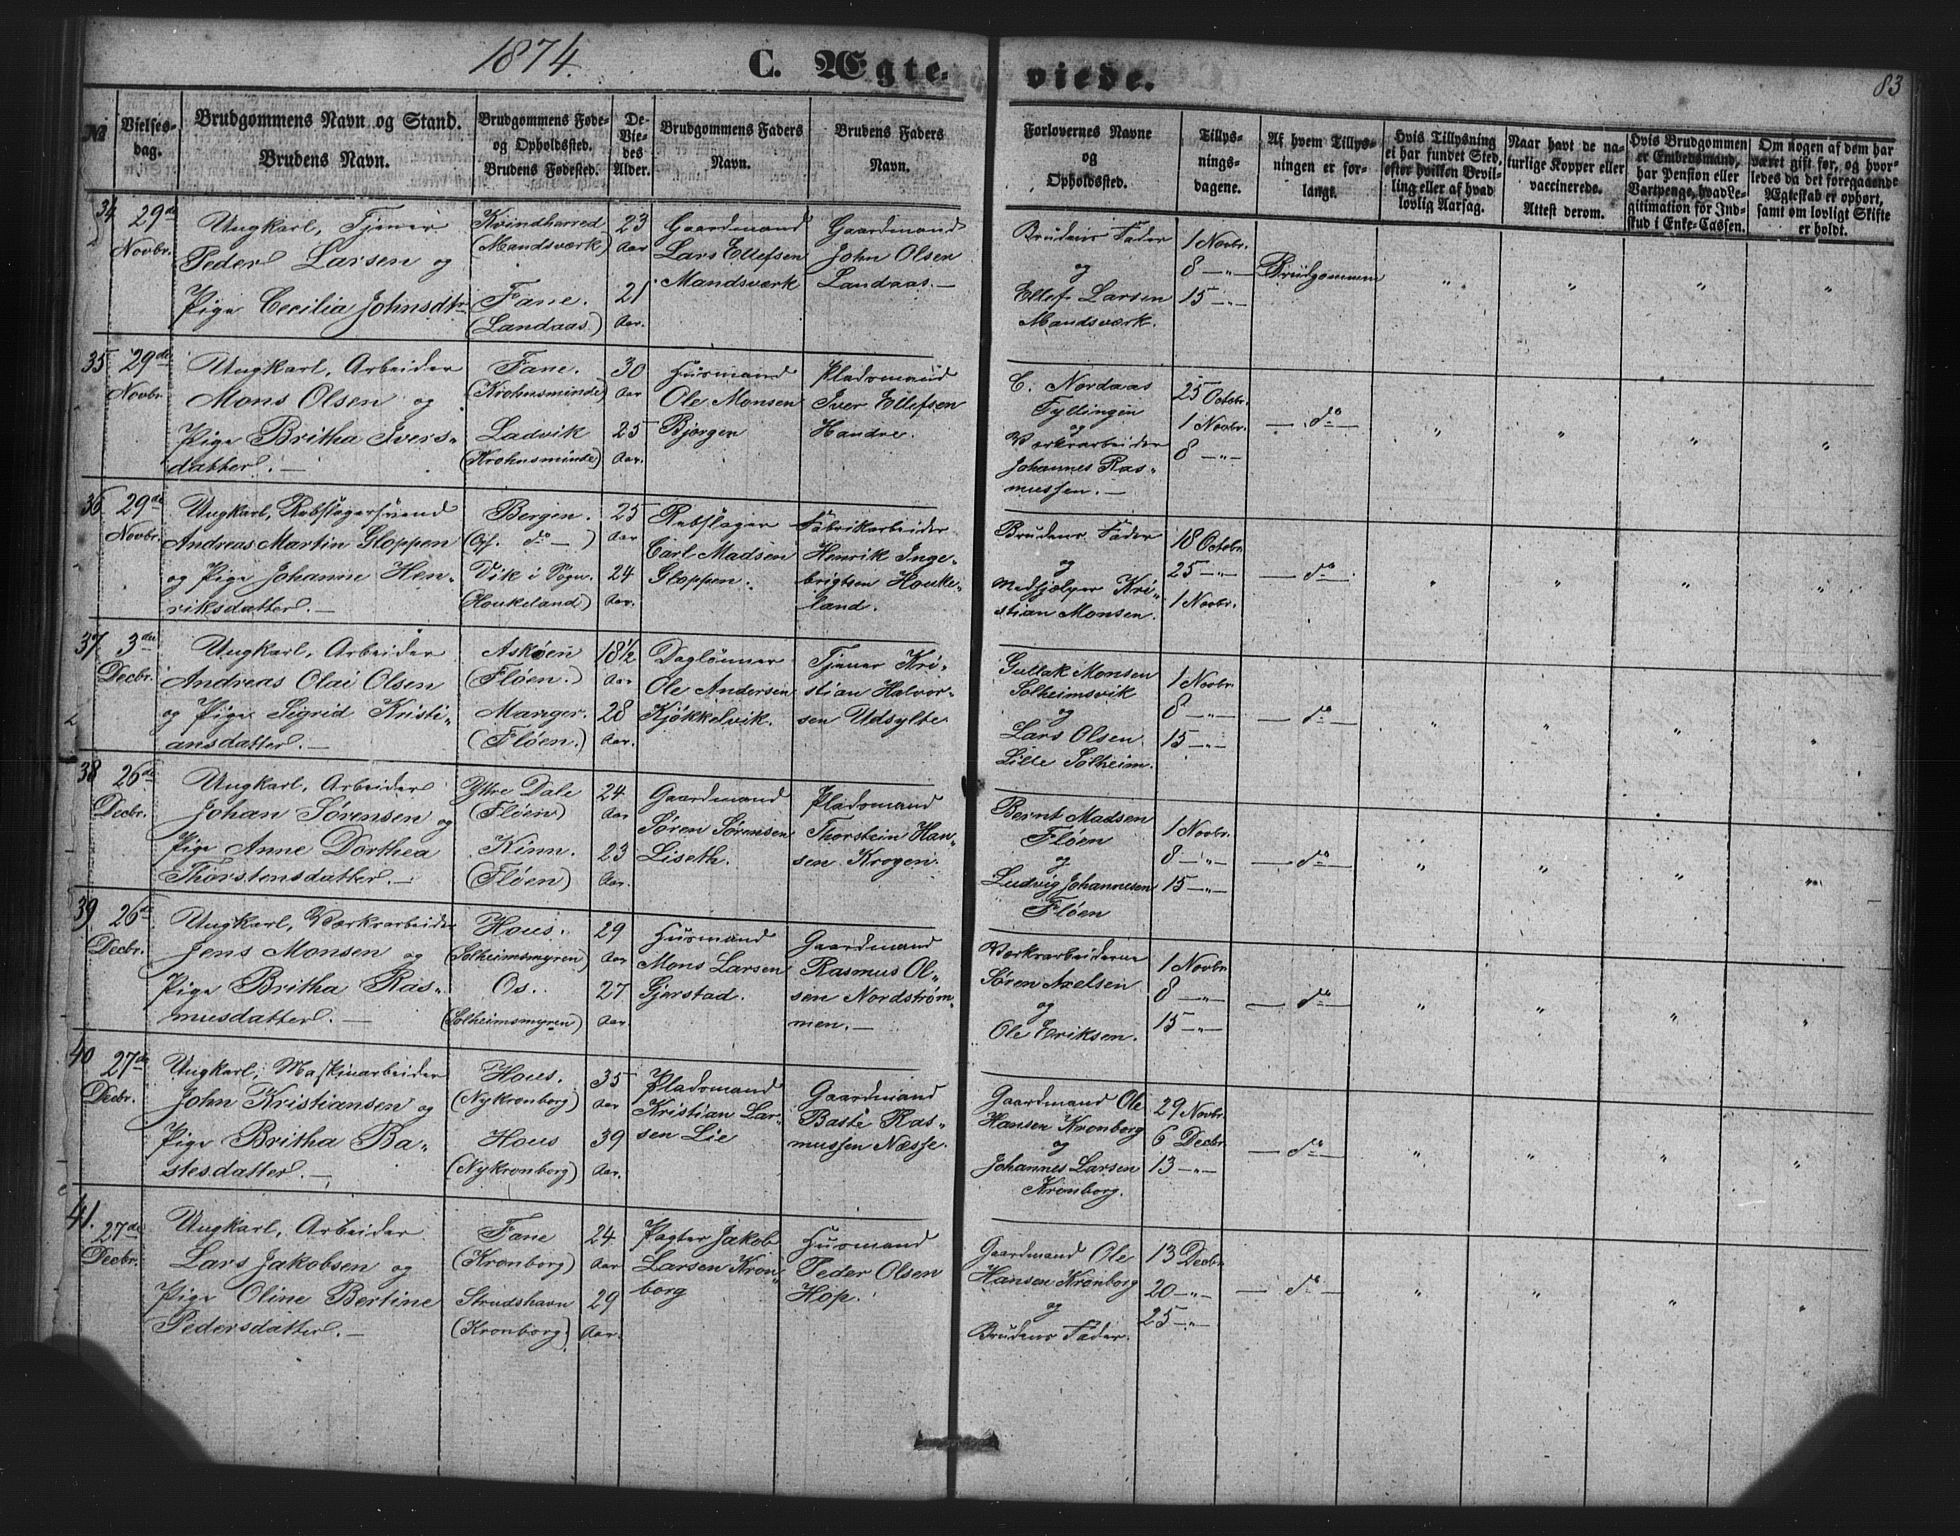 1874.
C. Ægteviede.
83
No
Vielsesdag.
Brudgommens Navn og Stand.
Brudens Navn.
Brudgommens Føde-
og Opholdssted.
Brudens Fødested.
De
Vie-
des
Alder.
Brudgommens Faders
Navn.
Brudens Faders
Navn.
Forlovernes Navne
og
Opholdssted.
Tillys-
nings-
dagene.
Af hvem Tillys-
ningen er for-
langt.
Hvis Tillysning
ei har fundet Sted,
efter hvilken Bevil-
ling eller af hvad
lovlig Aarsag.
Naar havt de na-
turlige Kopper eller
vaccinerede.
Attest derom.
Hvis Brudgommen
er Embedsmand,
har Pension eller
Vartpenge, hvad Le-
gitimation for Ind-
skud i Enke-Cassen.
Om nogen af dem har
været gift før, og hvor-
ledes da det foregaaende
Ægteskab er ophørt,
samt om lovligt Skifte
er holdt.
34
29de
Novbr.
Ungkarl, Tjener
Peder Larsen og
Pige Cecilia Johnsdtr
Kvindherred
(Mandsværk)
Fane.
(Landaas.)
23
Aar
21
Aar.
Gaardmand
Lars Ellefsen
Mandsværk
Gaardmand
John Olsen
Landaas.—
Brudens Fader
og
Ellef Larsen
Mandsværk.
1 Novbr.
8 —"—
15 —"—
Brudgommen
" " " "
35
29de
Novbr.
Ungkarl, Arbeider
Mons Olsen og
Pige Britha Ivers-
datter.—
Fane.
(Krohnsminde)
Ladvik
(Krohnsminde)
30
Aar
25
Aar.
Husmand
Ole Monsen
Bjørgen
Pladsmand
Iver Ellefsen
Handre.
C. Nordaas
Fyllingen
og
Værkarbeider
Johannes Ras-
mussen.—
25 Octobr.
1 Novbr.
8 —"—
— do —
" " " "
36
29de
Novbr.
Ungkarl, Rebslagersvend
Andreas Martin Gloppen
og Pige Johanne Hen-
riksdatter.—
Bergen.
(Opf. do —)
Vik i Sogn.
(Houkeland)
25
Aar
24
Aar.
Rebslager
Carl Madsen
Gloppen.
Fabrikarbeider
Henrik Inge-
brigtsen Houke-
land.
Brudens Fader
og
Medhjælper Kri-
stian Monsen.
18 Octobr
25 —"—
1 Novbr.
— do —
" " " "
37
3die
Decbr.
Ungkarl, Arbeider
Andreas Olai Olsen
og Pige Sigrid Kristi-
ansdatter.—
Askøen
(Fløen.)
Manger.
(Fløen.)
18 1/2
Aar
28
Aar.
Daglønner
Ole Andersen
Kjøkkelvik.
Tjener Kri-
stian Halvor-
sen Udsylte
Gullak Monsen
Solheimsvik
og
Lars Olsen
Lille Solheim.
1 Novbr.
8 —"—
15 —"—
— do —
" " " "
38
26de
Decbr.
Ungkarl, Arbeider
Johan Sørensen og
Pige Anne Dorthea
Thorstensdatter.—
Yttre Dale
(Fløen)
Kinn.
(Fløen)
24
Aar
23
Aar.
Gaardmand
Søren Sørensen
Liseth.
Pladsmand
Thorstein Han-
sen Krogen.
Bernt Madsen
Fløen
og
Ludvig Johannesen
Fløen
1 Novbr.
8 —"—
15 —"—
— do —
" " " "
39.
26de
Decbr.
Ungkarl, Værkarbeider
Jens Monsen og
Pige Britha Ras-
musdatter.—
Hous.
(Solheimsmyren)
Os.
(Solheimsmyren)
29
Aar
27
Aar.
Husmand
Mons Larsen
Gjerstad.
Gaardmand
Rasmus Ol-
sen Nordstrøm-
men.—
Værkarbeiderne
Søren Axelsen
og
Ole Eriksen.
1 Novbr
8 —"—
15 —"—
— do —
" " " "
40
27de
Decbr.
Ungkarl, Maskinarbeider
John Kristiansen og
Pige Britha Ba-
stesdatter.—
Hous.
(Nykronborg)
Hous
(Nykronborg)
35
Aar
39
Aar.
Pladsmand
Kristian Lar-
sen Lie
Gaardmand
Baste Ras-
mussen Næsse.
Gaardmand Ole
Hansen Kronborg
og
Johannes Larsen
Kronborg.
29 Novbr.
6 Decbr.
13 —"—
— do —
" " " "
41.
27de
Decbr.
Ungkarl, Arbeider
Lars Jakobsen og
Pige Oline Bertine
Pedersdatter.—
Fane
(Kronborg)
Strudshavn
(Kronborg)
24
Aar
29
Aar.
Pagter Jakob
Larsen Kron-
borg
Husmand
Peder Olsen
Hop.
Gaardmand Ole
Hansen Kronborg
og
Brudens Fader.
13 Decbr
20 —"—
25 —"—
— do —
" " " "